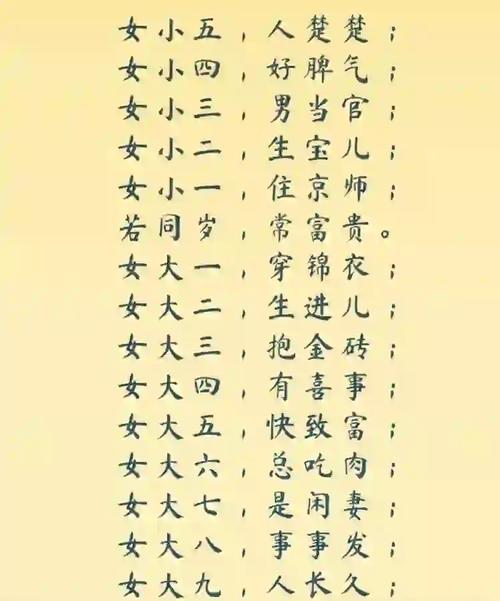 女小五，人楚楚；
女小四，好脾气；
女小三，男当官；
女小二，生宝儿；
女小一，住京师；
若同岁，常富贵。
女大一，穿锦衣；
女大二，生进儿；
女大三，抱金砖；
女大四，有喜事；
女大五，快致富；
女大六，总吃肉；
女大七，是闲妻；
女大八，事事发；
女大九，人长久；